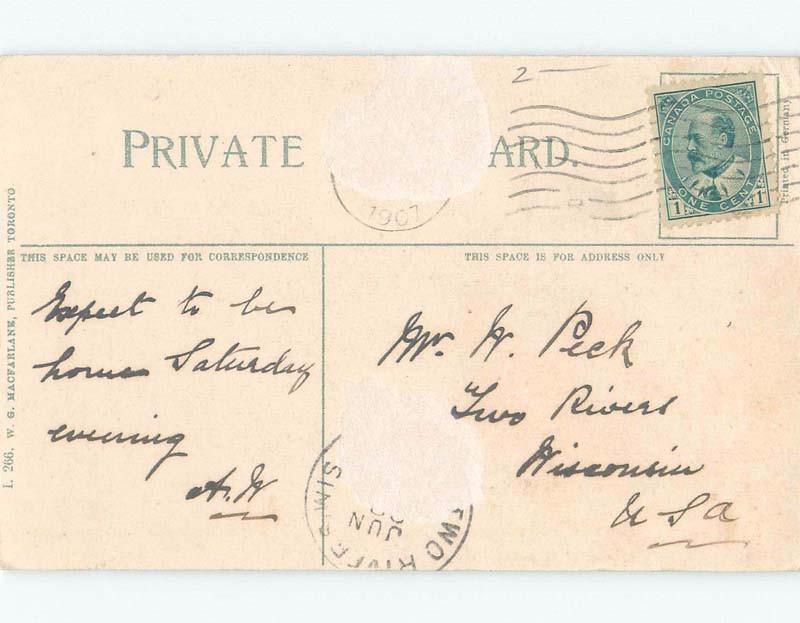 2 —
PRIVATE ARD.
CANADA POSTAGE
ONE CENT
1 1
Printed in Germany
1907
I. 266. W. G. MACFARLANE, PUBLISHER TORONTO
THIS SPACE MAY BE USED FOR CORRESPONDENCE
THIS SPACE IS FOR ADDRESS ONLY
Expect to be
home Saturday
evening
A. W
Mr. W. Peck
Two Rivers
Wisconsin
U S A
TWO RIVERS
JUN